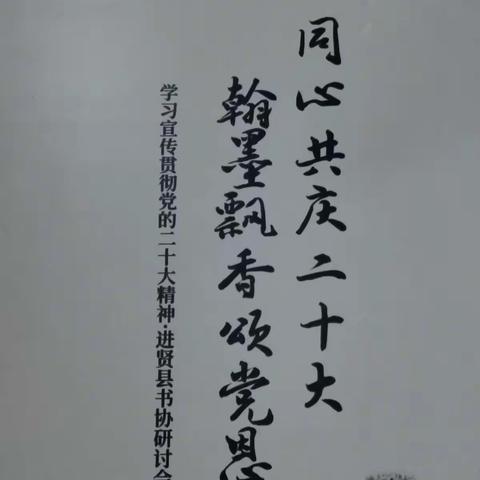 同心共庆二十大
翰墨飘香颂党恩
学习宣传贯彻党的二十大精神·进贤县书协研讨会